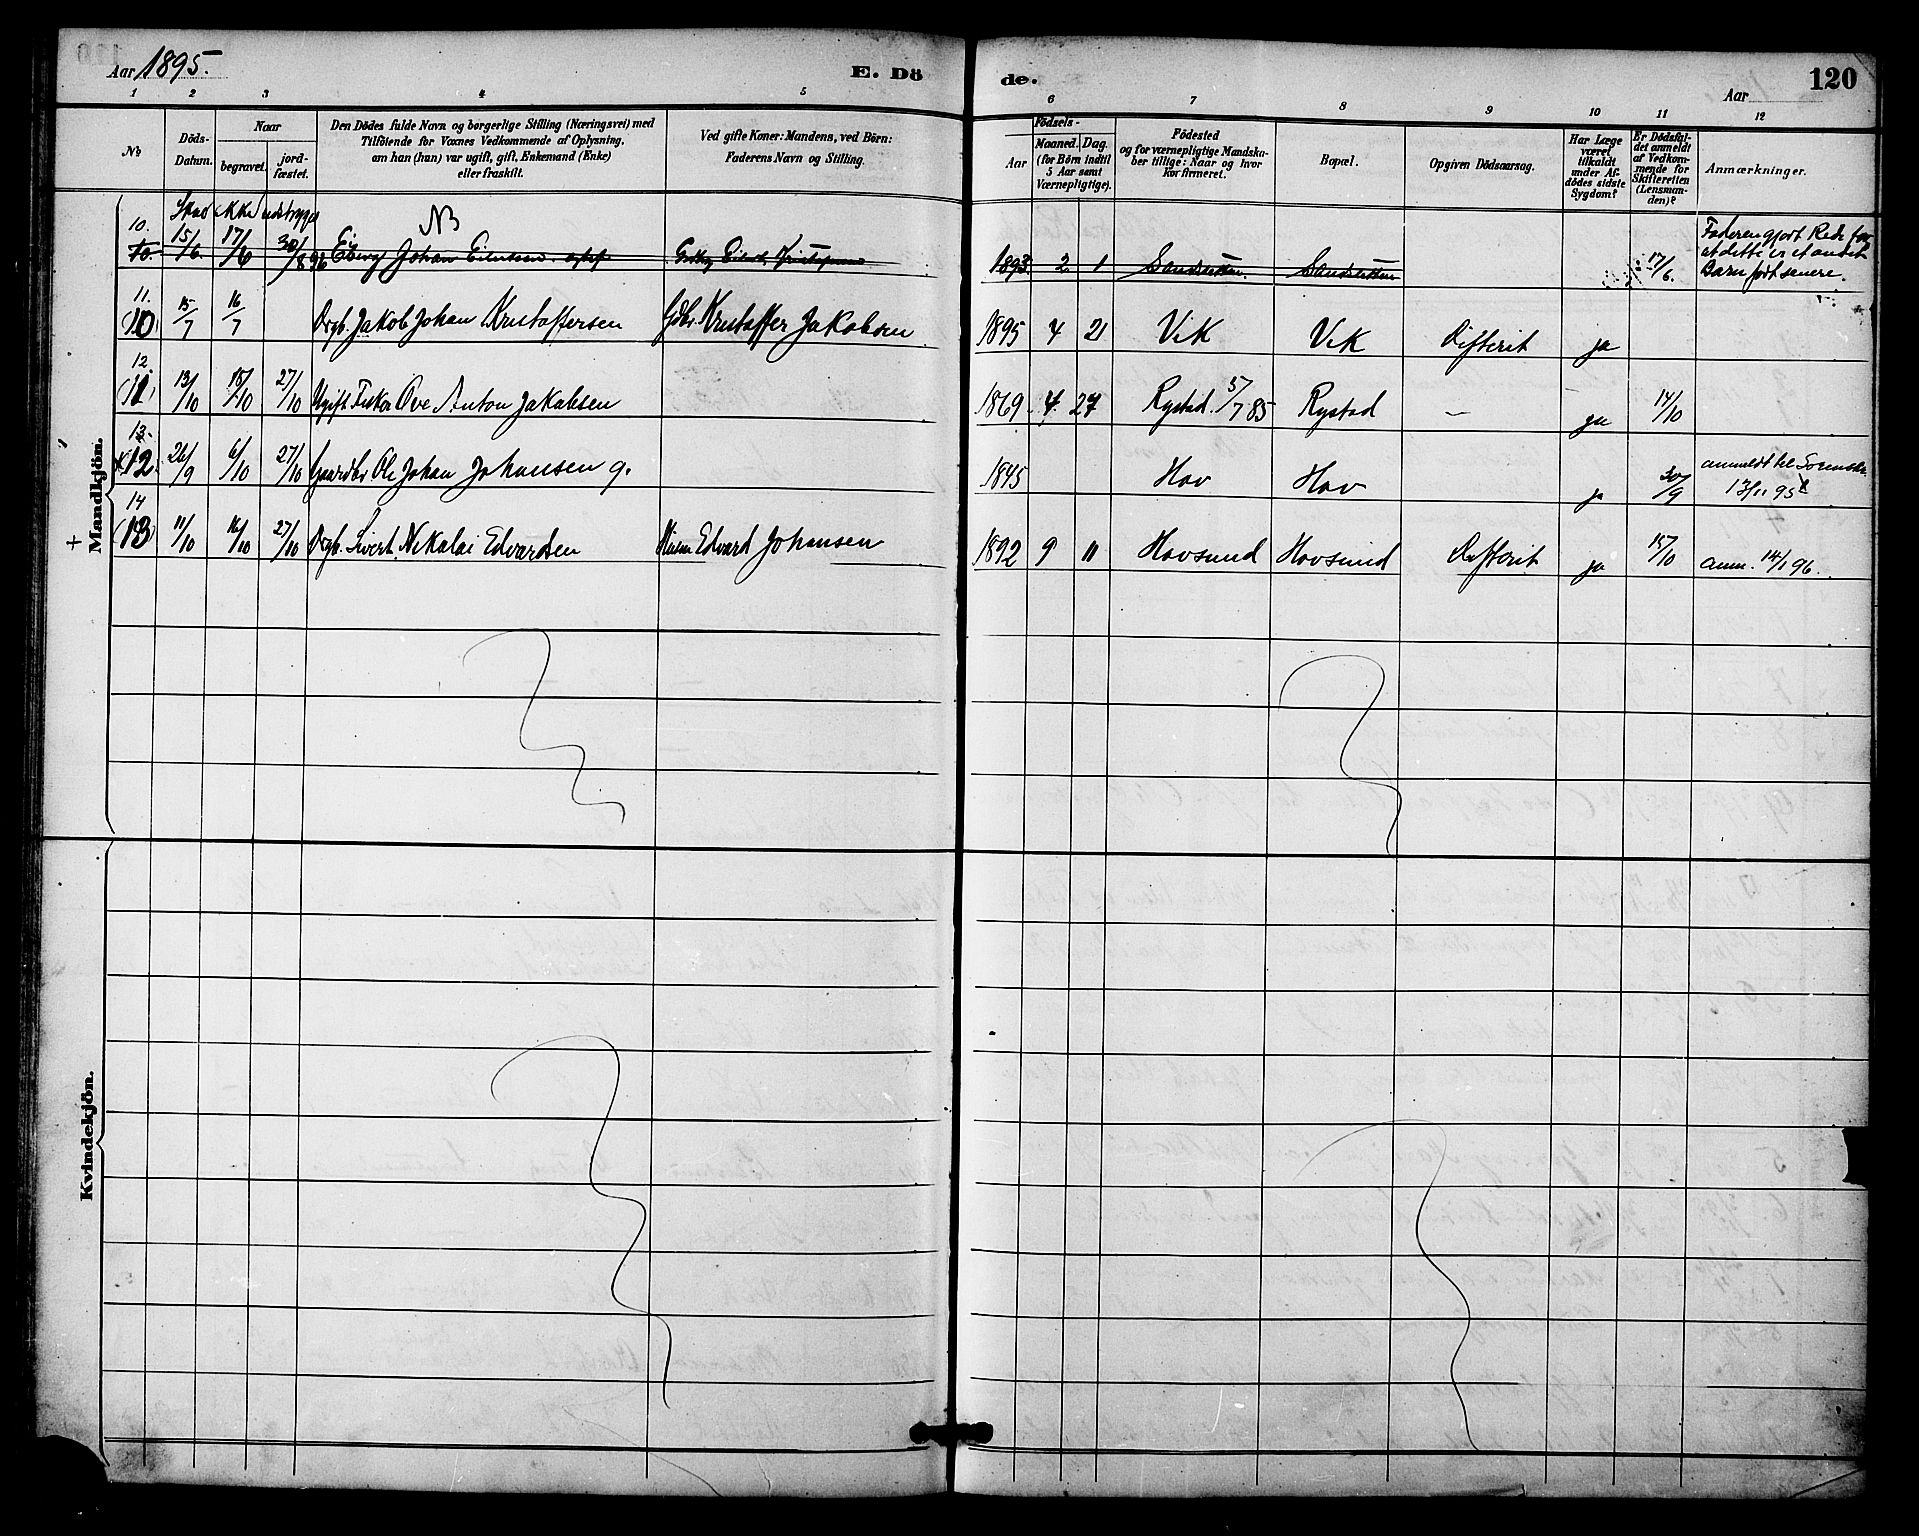 Aar 1895. E. Dö de. Aar 120
1 2 3 4 5 6 7 8 9 10 11 12
No Döds-Datum. Naar begravet. jord-fæstet. Den Dödes fulde Navn og borgerlige Stilling (Næringsvei) med Tilföiende for Voxnes Vedkommende af Oplysning, om han (hun) var ugift, gift, Enkemand (Enke) eller fraskilt. Ved gifte Koner: Mandens, ved Börn: Faderens Navn og Stilling. Födsels- Aar Maaned. Dag. (for Börn indtil 5 Aar samt Værnepligtige). Födested og for værnepligtige Mandskaber tillige: Naar og hvor Konfirmeret. Bopæl. Opgiven Dödsaarsag. Har Læge været tilkaldt under Afdödes sidste Sygdom? Er Dödsfaldet anmeldt af Vedkommende for Skifteretten (Lensmanden)? Anmærkninger.
Mandkjön.
Skal ikke NB
10. 10. 15/6. 17/6 30/1896 Johan 1893 2 1 Sandsletten. Sandsletten 17/6. Faderen gjort Rede for at dette er et andet Barn født senere.
11. (10) 15/7 16/7 Drgb. Jakob Johan Kristoffersen Gdbr. Kristoffer Jakobsen 1895 4 21 Vik Vik Difterit ja
12. (11) 13/10 18/10 27/10 Ugift Fisker Ove Anton Jakobsen 1869 4. 27 Rystad. 5/7 85 Rystad — ja 14/10
13. (12) 26/9 6/10 27/10 Gaardbr Ole Johan Johansen g. 1845 Hov Hov ja 30/9 anmeldt til 13/11 95
14 (13) 11/10 16/10 27/10 Drgb. Sivert Nikolai Edvardsen Edvard Johansen 1892 9 11 Hovsund Hovsund Difterit ja 15/10 anm. 14/1 96.
Kvindekjön.